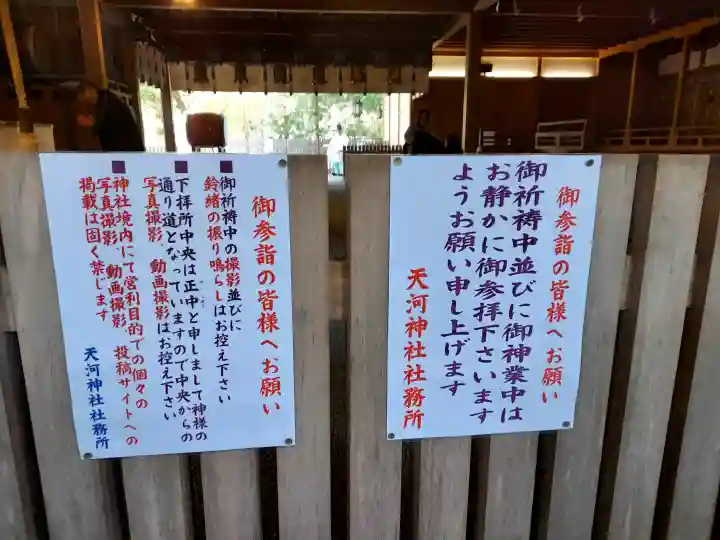 御参詣の皆様へお願い
御祈祷中並びに御神業中は
お静かに御参拝下さいます
ようお願い申し上げます
天河神社社務所
御参詣の皆様へお願い
■御祈祷中の撮影並びに
鈴緒の振り鳴らしはお控え下さい
■下拝所中央は正中と申しまして神様の
通り道となっていますので中央からの
写真撮影、動画撮影はお控え下さい
■神社境内にて営利目的での個々の
写真撮影、動画撮影、投稿サイトへの
掲載は固く禁じます
天河神社社務所